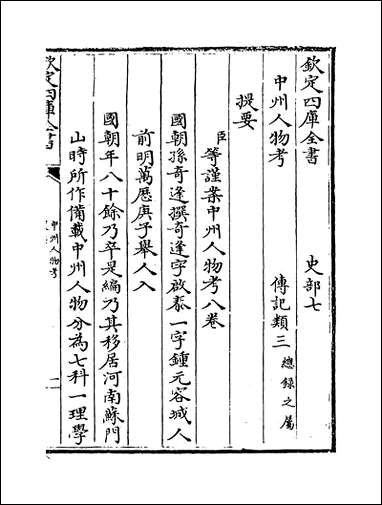 欽定四庫全書 史部七
中州人物考 傳記類三 總錄之屬
提要
臣等謹案中州人物考八卷
國朝孫奇逢撰奇逢字啟泰一字鍾元容城人
前明萬厯庚子舉人入
國朝年八十餘乃卒是編乃其移居河南蘇門
山時所作備載中州人物分為七科一理學
欽定四庫全書
中州人物考
一